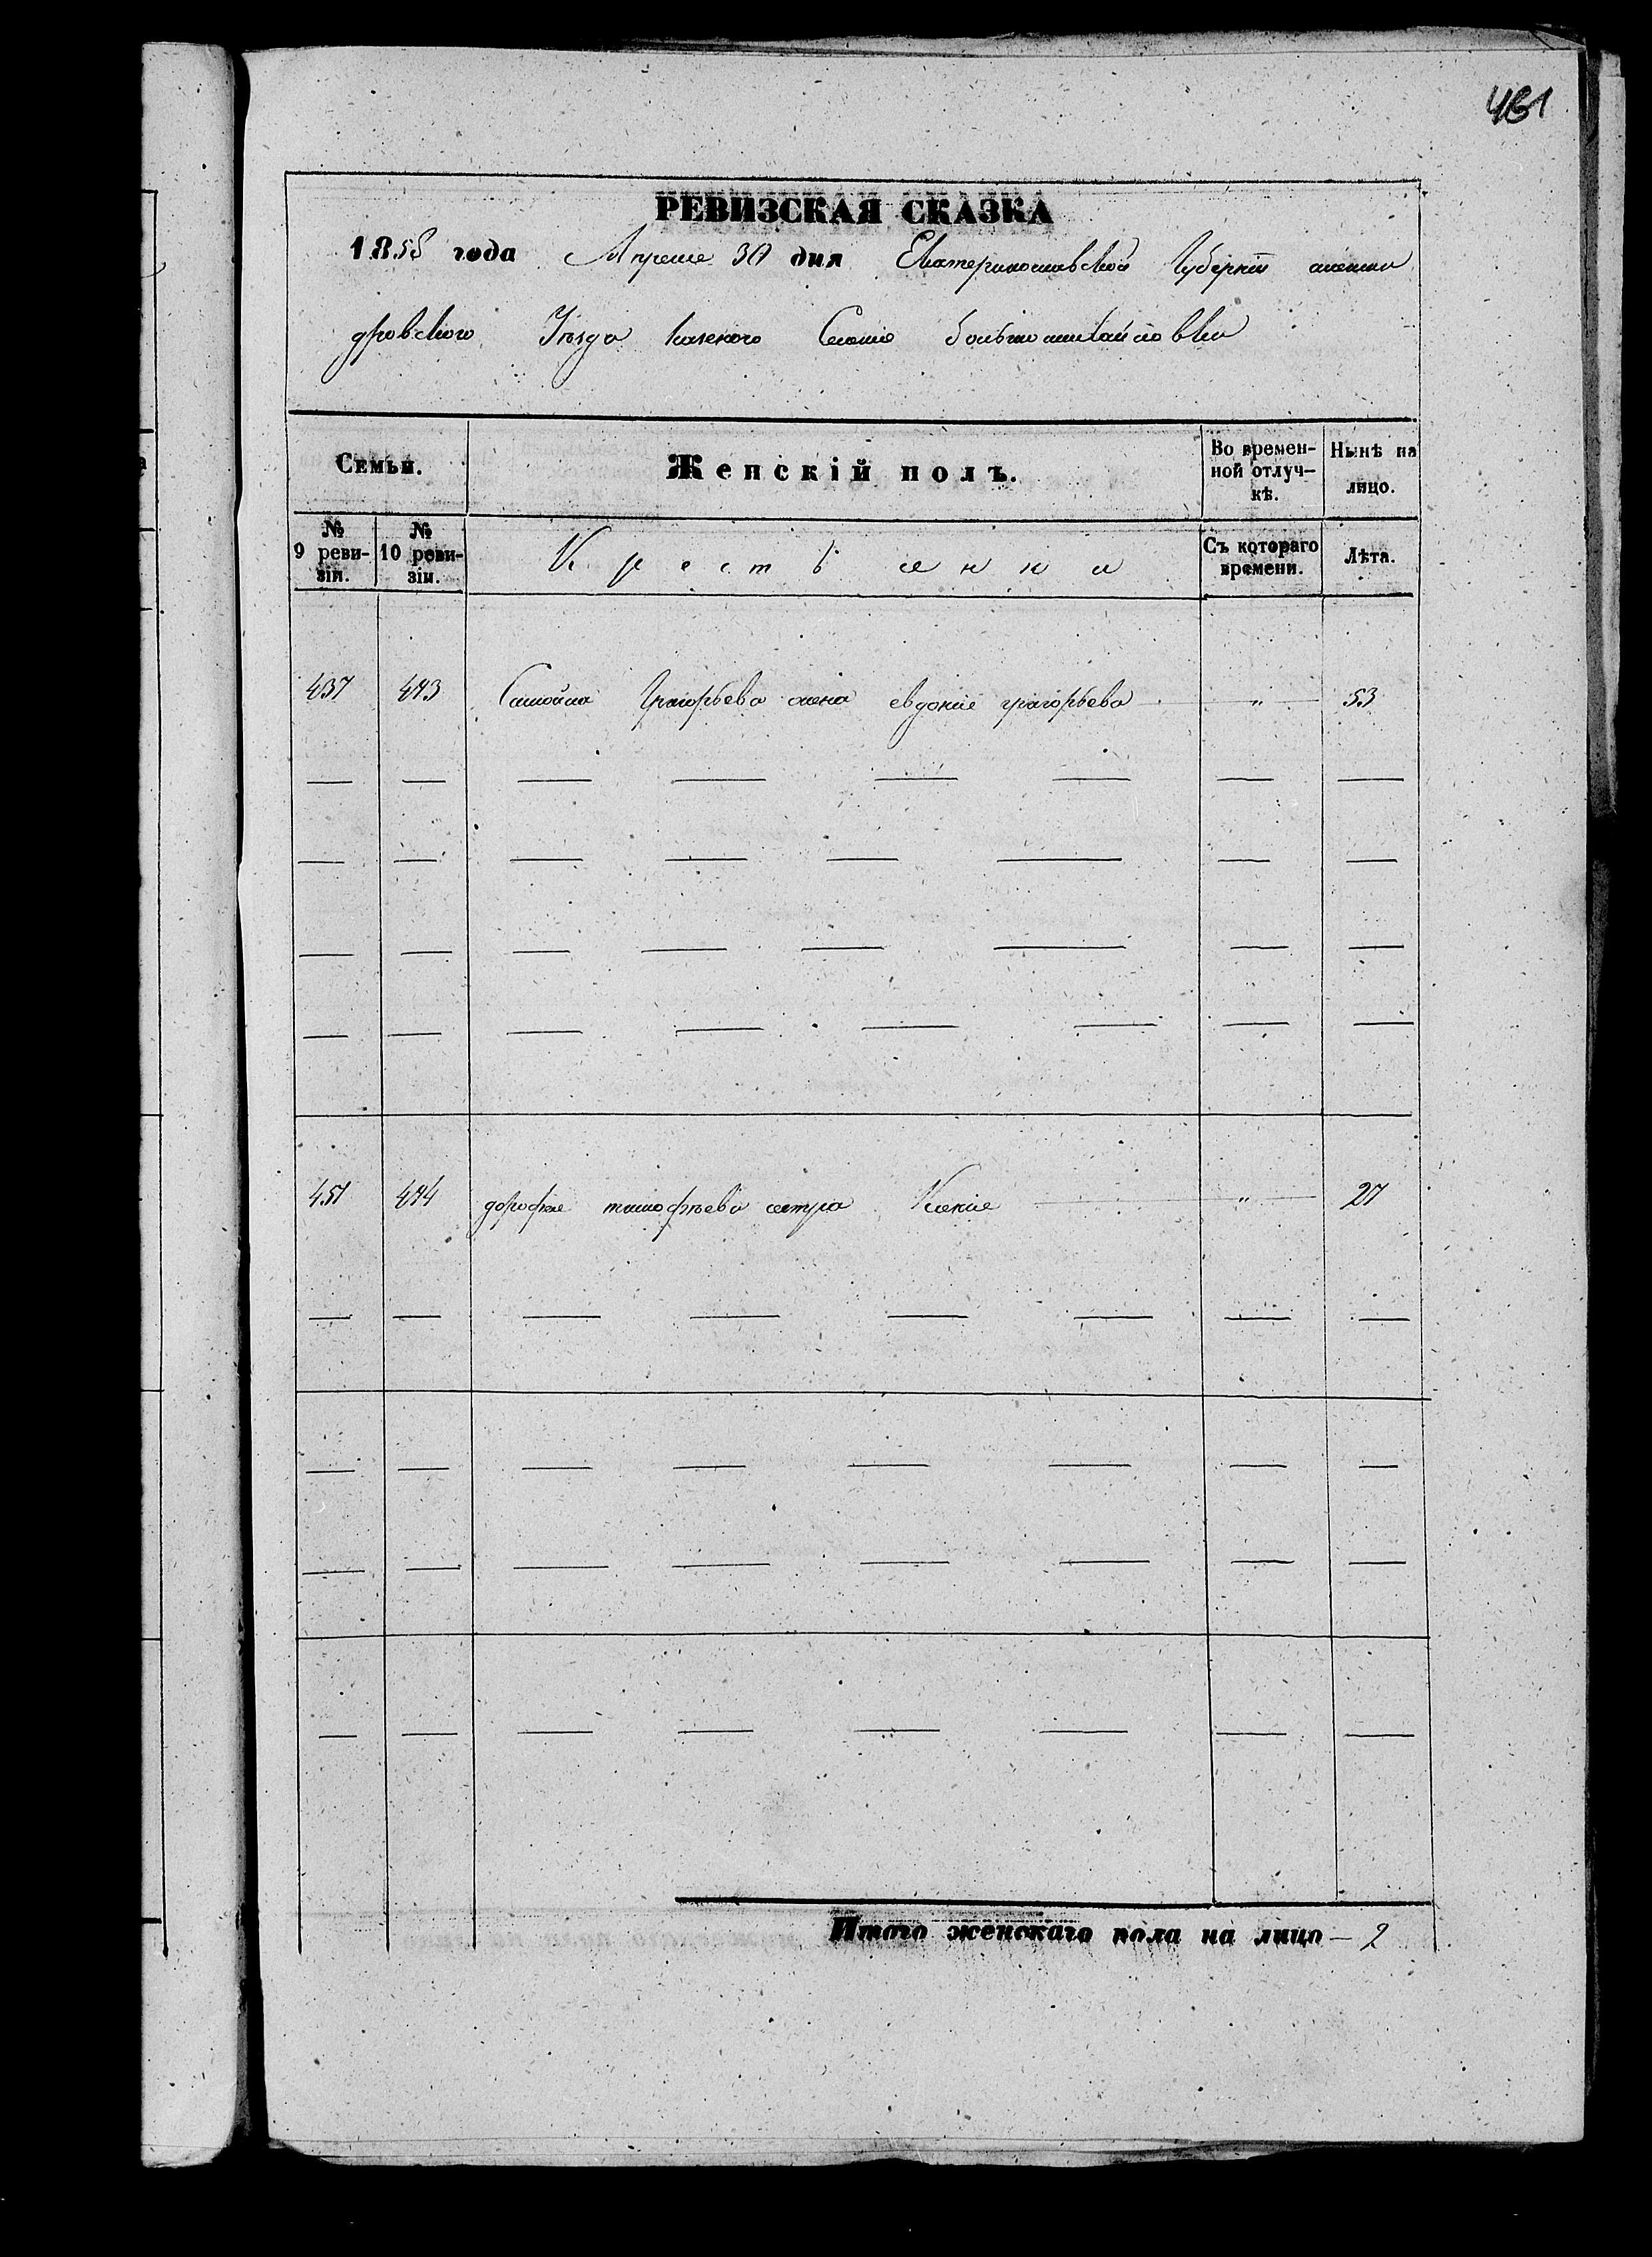 461
РЕВИЗСКАЯ СКАЗКА
1858 года Апреля 30 дня Екатеринославской Губерніи алексан
дровского Уѣзда казеного Селенія большемихайловки
Семьи.
Женскій полъ.
Во времен-
ной отлуч-
кѣ.
Нынѣ на
лицо.
№
9 реви-
зіи.
№
10 реви-
зіи.
Крестьянки
Съ котораго
времени.
Лѣта.
437 473 Самойла Григорьева жена евдокія григорьева " 53
451 474 дорофея тимофѣева сестра Ксенія " 27
Итого женскаго пола на лицо — 2